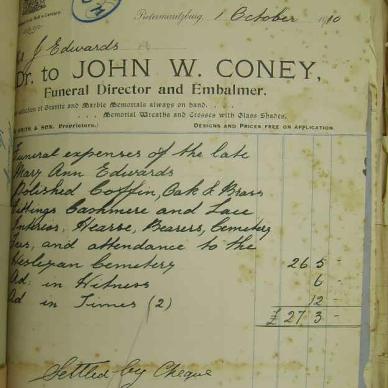 Pietermaritzburg, 1 October 1910
J Edwards
Dr. to JOHN W. CONEY,
Funeral Director and Embalmer.
selection of Granite and Marble Memorials always on hand. . . .
. . . Memorial Wreaths and Crosses with Glass Shades.
& SON. Proprietors. DESIGNS AND PRICES FREE ON APPLICATION.
Funeral expenses of the late
Mary Ann Edwards
Polished Coffin, Oak & Brass
Fittings Cashmere and Lace
Hearse, Bearers, Cemetery
fees, and attendance to the
Wesleyan Cemetery 26 5 -
Ad. in Witness 6 -
Ad in Times (2) 12 -
£ 27 3 -
Settled by Cheque